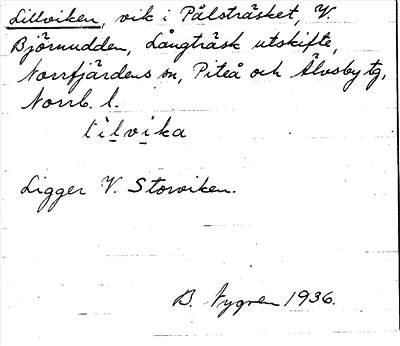 Lillviken, vik i Pålsträsket, V.
Björnudden, Långträsk utskifte,
Norrfjärdens sn, Piteå och Älvsby tg,
Norrb. l.
lìlvika
Ligger V. Storviken.
B. Nygren 1936.